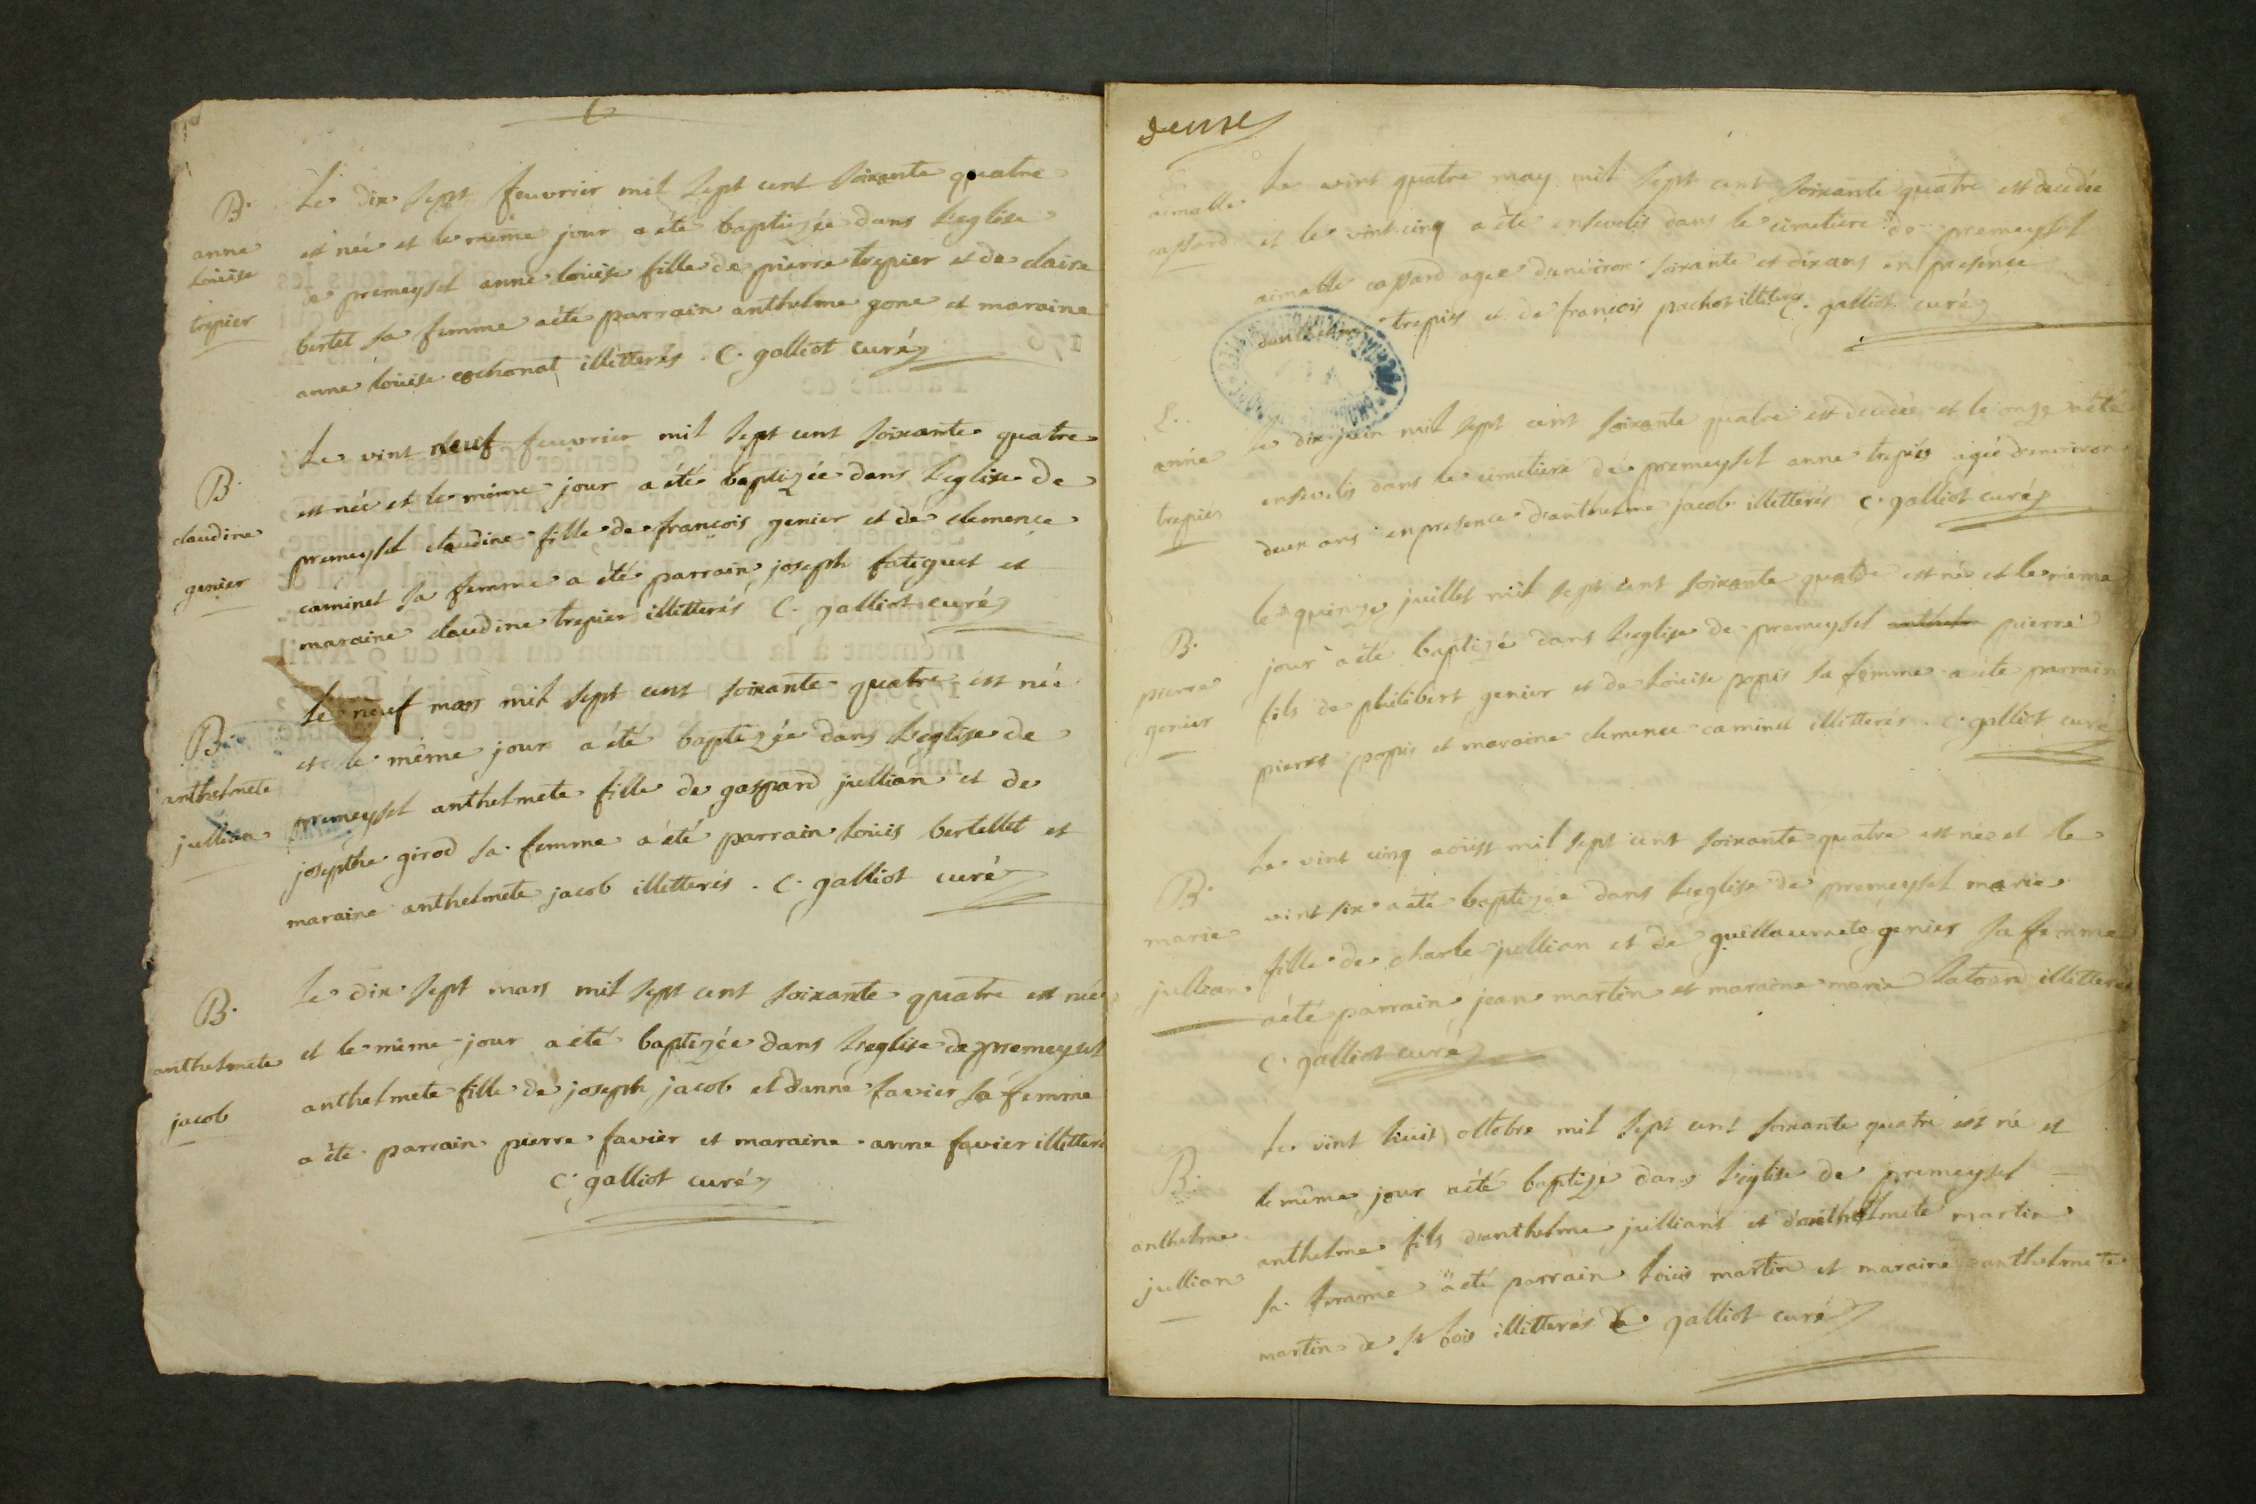 B.
anne
Loüise
trepier
Le dix sept feuvrier mil sept cent soixante quatre
est née et le même jour a été baptizée dans l'eglise
de premeysel anne loüise fille de pierre trepier et de claire
bertet sa femme a été parrain anthelme gone et maraine
anne loüise cochonat illitterés. C. galliot curé
B.
claudine
genier
Le vint neuf feuvrier mil sept cent soixante quatre
est née et le même jour a été baptizée dans l'eglise de
premeysel claudine fille de françois genier et de clemence
caminet sa femme a été parrain joseph fatiguet et
maraine claudine trepier illitterés C. galliot curé
B.
anthelmete
jullian
Le neuf mars mil sept cent soixante quatre est née
et le même jour a été baptizée dans l'eglise de
premeysel anthelmete fille de gaspard jullian et de
josepthe girod sa femme a été parrain loüis bertellet et
maraine anthelmete jacob illitterés. C. galliot curé
B.
anthelmete
jacob
Le dix sept mars mil sept cent soixante quatre est née
et le même jour a été baptizée dans l'eglise de premeysel
anthelmete fille de joseph jacob et d'anne favier sa femme
a été parrain pierre favier et maraine anne favier illitteré
C. galliot curé
aimable
cassard
Le vint quatre may mil sept cent soixante quatre est decedée
et le vint cinq a été ensevelis dans le cimetiere de premeysel
aimable cassard agée d'environ soixante et dix ans en presence
trepier et de françois pachot illitterés C. galliot curé
anne
trepier
Le dix juin mil sept cent soixante quatre est decedée et le onze a été
ensevelis dans le cimetiere de premeysel anne trepier agée d'environ
deux ans en presence d'anthelme jacob illitterés C. galliot curé
B.
pierre
genier
le quinze juillet mil sept cent soixante quatre est né et le même
jour a été baptizé dans l'eglise de premeysel pierre
fils de philibert genier et de loüise popis sa femme a été parrain
pierre popis et maraine clemence caminet illitterés. C. galliot curé
B.
marie
jullian
Le vint cinq aoüst mil sept cent soixante quatre est née et le
vint six a été baptizée dans l'eglise de premeysel marie
fille de charle jullian et de guillaumete genier sa femme
a été parrain jean martin et maraine marie illitterés
C. galliot curé
B.
anthelme
jullian
Le vint huit ottobre mil sept cent soixante quatre est né et
le même jour a été baptizé dans l'eglise de premeysel
anthelme fils d'anthelme jullian et d'anthelmete martin
sa femme a été parrain loüis martin et maraine anthelmete
martin de st bois illitterés C. galliot curé